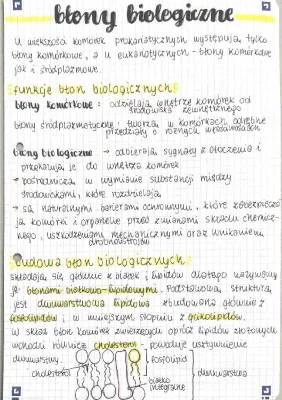 błony biologiczne
U większości komórek prokariotycznych występują tylko
błony komórkowe, a u eukariotycznych - błony komórkowe
jak i śródplazmowe.
funkcje błon biologicznych
błony komórkowe: oddzielają wnętrze komórek od
środowiska zewnętrznego
błony śródplazmatyczne: tworzą w komórkach odrębne
przedziały o różnych właściwościach
błony biologiczne → odbierają sygnały z otoczenia i
przekazują je do wnętrza komórek
→ pośredniczą w wymianie substancji między
środowiskami, które rozdzielają
→ są naturalnymi barierami ochronnymi, które zabezpiecza-
ją komórki i organelle przed zmianami składu chemicz-
nego, uszkodzeniami mechanicznymi oraz wnikaniem
drobnoustrojów
budowa błon biologicznych
składają się głównie z białek i lipidów dlatego nazywamy
je błonami białkowo-lipidowymi. Podstawową strukturą
jest dwuwarstwowa lipidowa zbudowana głównie z
fosfolipidów i w mniejszym stopniu z glikolipidów.
W skład błon komórek zwierzęcych oprócz lipidów złożonych
wchodzi również cholesterol - powoduje usztywnienie
dwuwarstwy.
cholesterol
fosfolipid
białko
integralne
dwuwarstwa